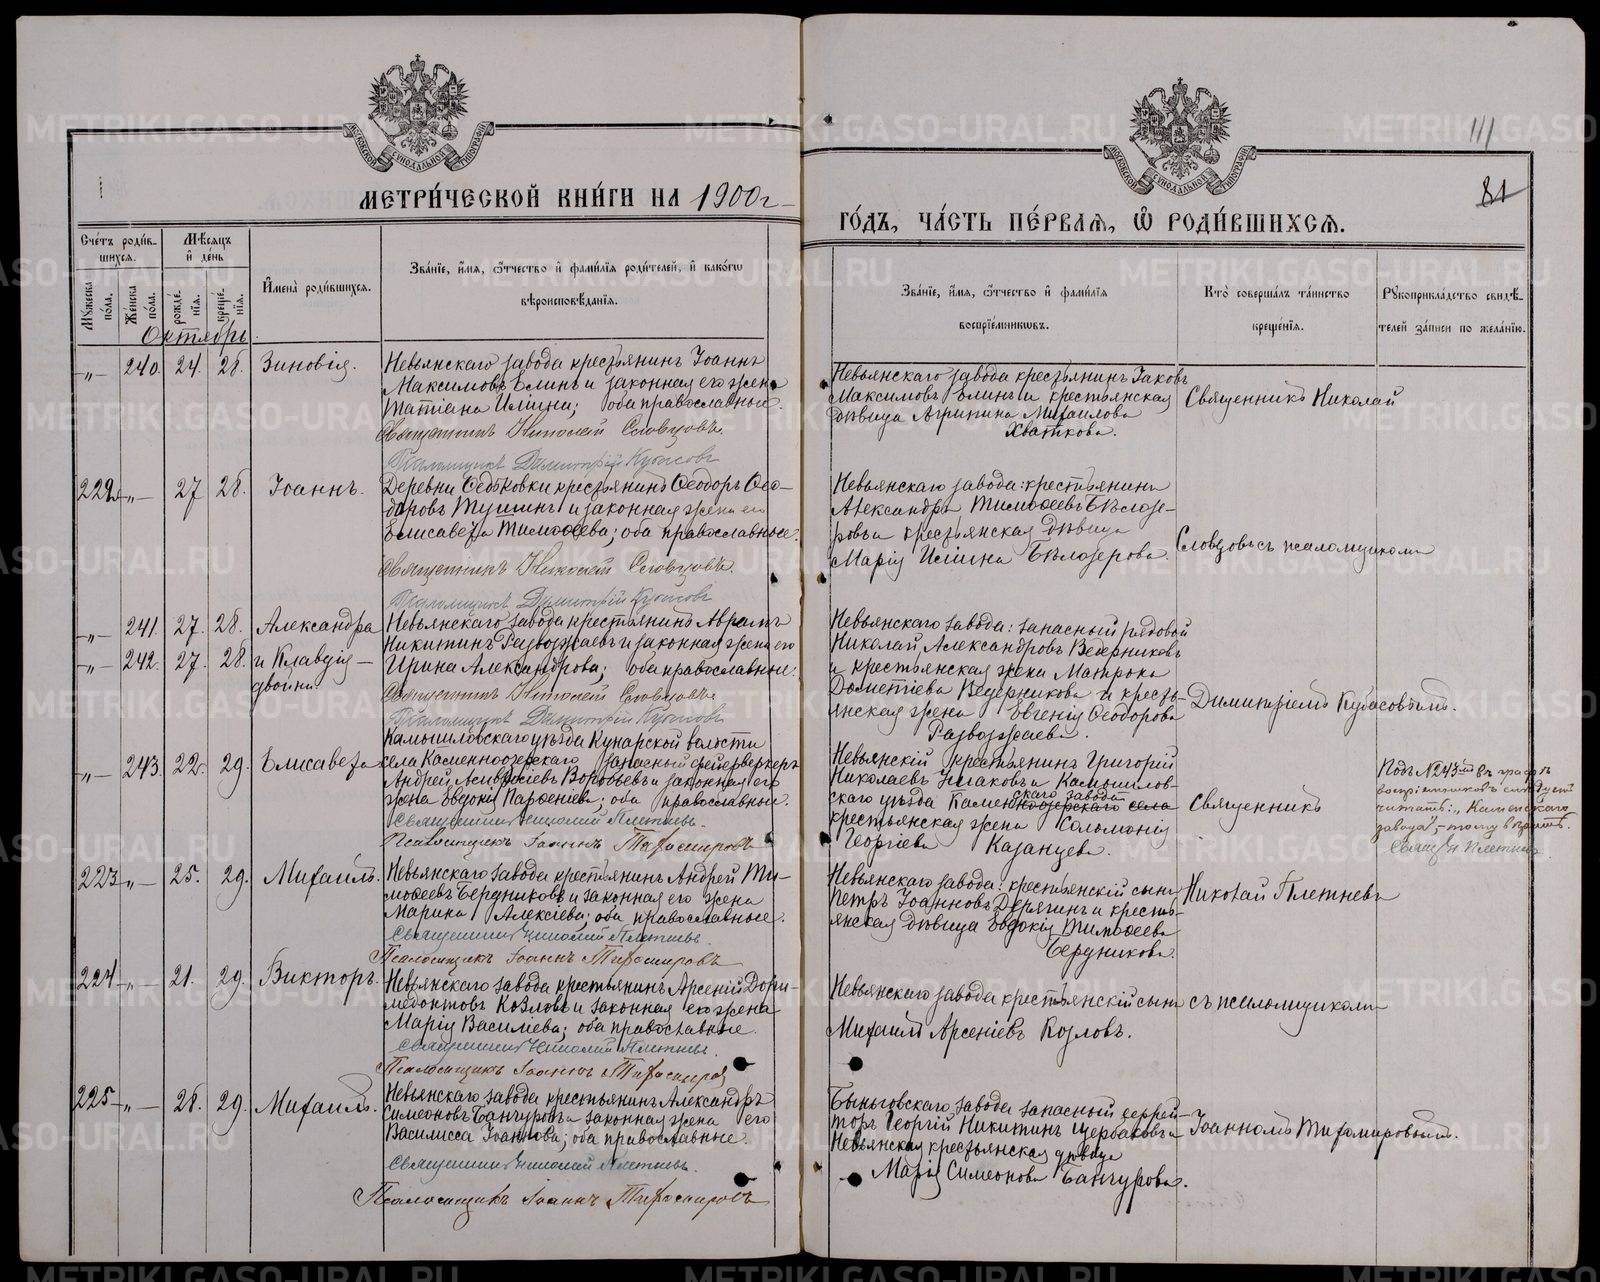 111
81
МЕТРИ́ЧЕСКОЙ КНИ́ГИ НА 1900 г
ГО́ДЪ, ЧА́СТЬ ПЕ́РВАЯ, Ѽ РОДИ́ВШИХСЯ.
Сче́тъ роди́в-
шихся.
Мꙋжеска по́ла.
Же́нска по́ла.
Мѣ́сяцъ и҆ де́нь
рожде́нїя.
креще́нїя.
И҆мена̀ роди́вшихся.
Зва́нїе, и҆́мя, ѻ҆́тчество и҆ фами́лїя роди́телей, и҆ како́гѡ
вѣроисповѣ́данїя.
Зва́нїе, и҆́мя, ѻ҆́тчество и҆ фами́лїя
воспрїе́мниковъ.
Кто̀ соверша́лъ та́инство
креще́нїя.
Рꙋкоприкла́дство свидѣ́-
телей за́писи по жела́нїю.
Октябрь
-„- 240. 24. 28. Зиновія.
Невьянскаго завода крестьянинъ Іоаннъ
Максимовъ Елинъ и законная его жена
Татіана Иліина; оба православные.
Священникъ Николай Словцовъ.
Псаломщикъ Димитрій Кубасовъ
Невьянскаго завода крестьянинъ Іаковъ
Максимовъ Елинъ и крестьянская
дѣвица Агрипина Михаилова
Хваткова.
Священникъ Николай
222 -„- 27 28. Іоаннъ.
Деревни Ѳедьковки крестьянинъ Ѳеодоръ Ѳео-
доровъ Тушинъ и законная жена его
Елисавета Тимоѳеева; оба православные.
Священникъ Николай Словцовъ.
Псаломщикъ Димитрій Кубасовъ
Невьянскаго завода: крестьянинъ
Александръ Тимоѳеевъ Бѣлозе-
ровъ и крестьянская дѣвица
Марія Иліина Бѣлозерова.
Словцовъ съ псаломщикомъ
-„- 241. 27. 28. Александра
-„- 242. 27. 28. и Клавдія –
двойни
Невьянскаго завода крестьянинъ Аврамъ
Никитинъ Развозжаевъ и законная жена его
Ирина Александрова; оба православные.
Священникъ Николай Словцовъ
Псаломщикъ Димитрій Кубасовъ
Невьянскаго завода: запасный рядовой
Николай Александровъ Ведерниковъ
и крестьянская жена Матрона
Дометіева Ведерникова и кресть-
янская жена Евгенія Ѳеодорова
Развозжаева.
Димитріемъ Кубасовымъ.
-„- 243. 22. 29. Елисавета
Камышловскаго уѣзда Кунарской волости
села Каменноозерскаго запасный фейерверкеръ
Андрей Амвросіевъ Воробьевъ и законная его
жена Евдокія Парѳеніева; оба православные.
Священникъ Николай Плетневъ.
Псаломщикъ Іоаннъ Тихомировъ
Невьянскій крестьянинъ Григорій
Николаевъ Ушаковъ и Камышлов-
скаго завода
скаго уѣзда Каменноозерскаго села
крестьянская жена Соломонія
Георгіева Казанцева.
Священникъ
Подъ № 243-мъ въ графѣ
воспріемниковъ слѣдуетъ
читать: „Каменскаго
завода", – тому вѣрить.
Свящ. Н. Плетневъ.
223 -„- 25. 29. Михаилъ.
Невьянскаго завода крестьянинъ Андрей Ти-
моѳеевъ Бердниковъ и законная его жена
Марина Алексіева; оба православные.
Священникъ Николай Плетневъ.
Псаломщикъ Іоаннъ Тихомировъ
Невьянскаго завода: крестьянскій сынъ
Петръ Іоанновъ Дерягинъ и кресть-
янская дѣвица Евдокія Тимоѳеева
Бердникова.
Николай Плетневъ
224 -„- 21. 29. Викторъ.
Невьянскаго завода крестьянинъ Арсеній Дори-
медонтовъ Козловъ и законная его жена
Марія Василіева; оба православные.
Священникъ Николай Плетневъ.
Псаломщикъ Іоаннъ Тихомировъ
Невьянскаго завода крестьянскій сынъ
Михаилъ Арсеніевъ Козловъ.
съ псаломщикомъ
225 -„- 28. 29. Михаилъ.
Невьянскаго завода крестьянинъ Александръ
Симеоновъ Банчуровъ и законная жена его
Василисса Іоаннова; оба православные.
Священникъ Николай Плетневъ.
Псаломщикъ Іоаннъ Тихомировъ
Быньговскаго завода запасный ефрей-
торъ Георгій Никитинъ Щербаковъ и
Невьянская крестьянская дѣвица
Марія Симеонова Банчурова.
Іоанномъ Тихомировымъ.
METRIKI.GASO-URAL.RU